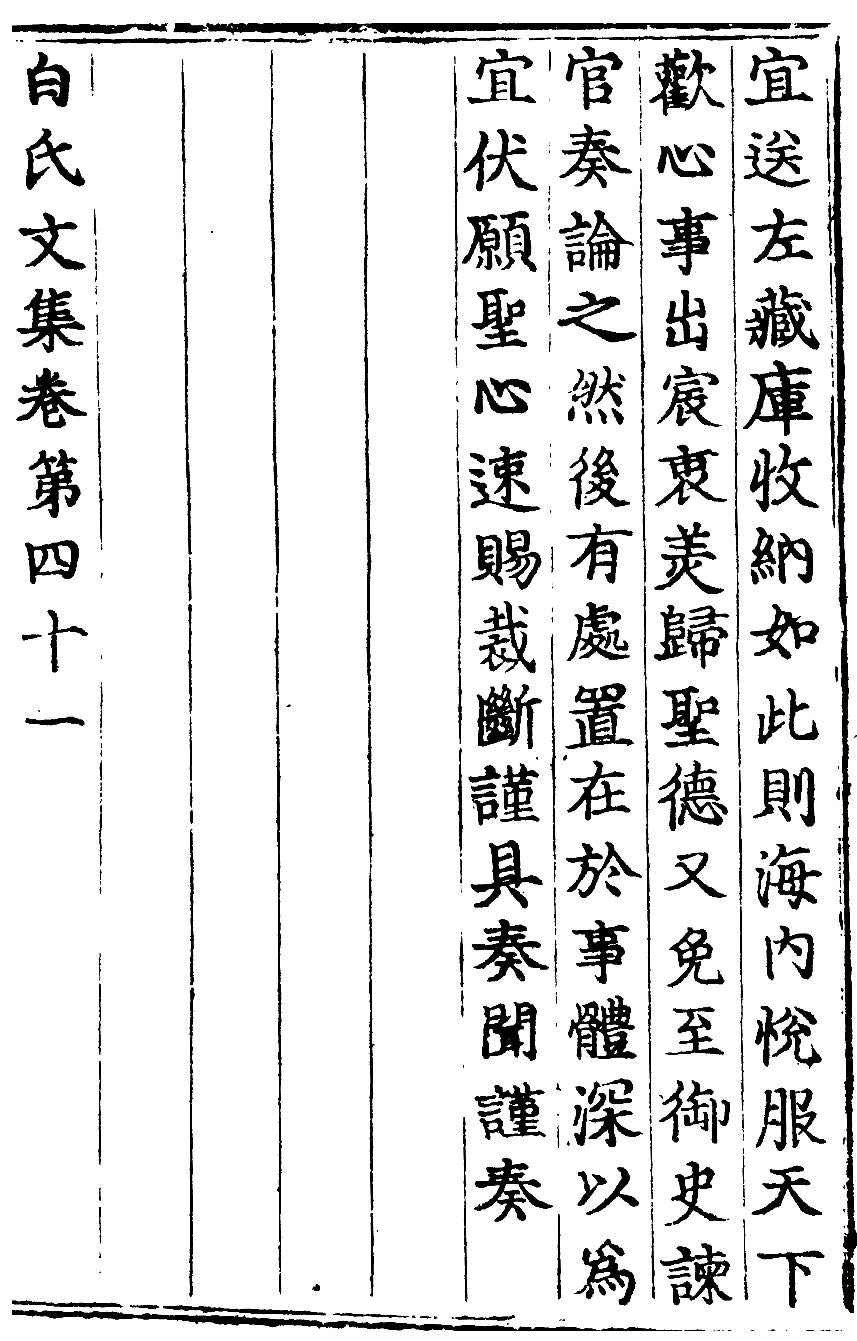 宜送左藏庫收納如此則海內悅服天下
歡心事出宸衷羙歸聖德又免至御史諫
官奏論之然後有處置在於事體深以為
宜伏願聖心速賜裁斷謹具奏聞謹奏
白氏文集卷第四十一